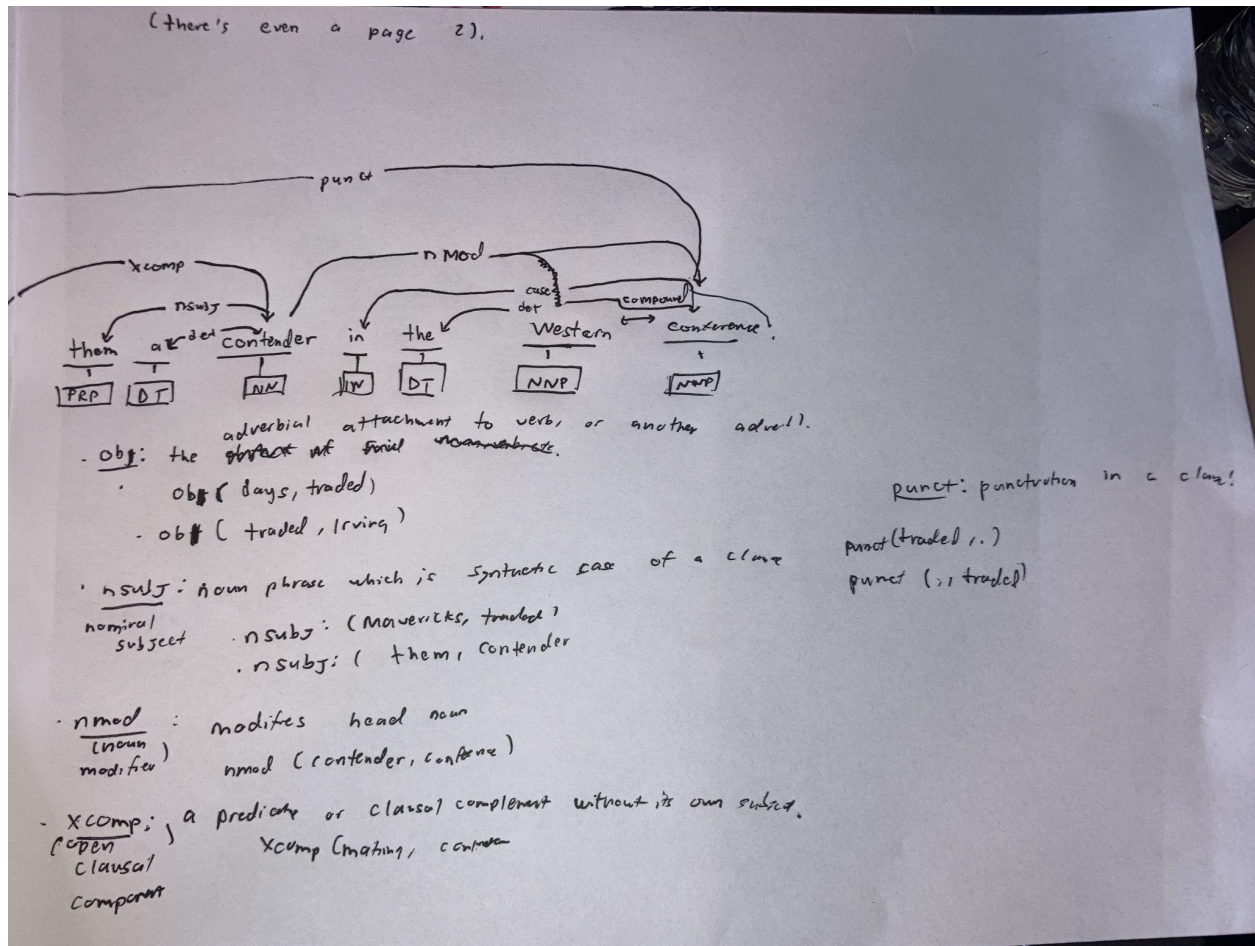 (there's even a page 2).
punct
xcomp nmod
nsubj case compound
det det
them a contender in the Western conference .
PRP DT NN IN DT NNP NNP
adverbial attachment to verb, or another adverb).
- obj: the
· obj ( days, traded)
- obj ( traded, Irving )
punct: punctuation in a clause!
punct(traded, .)
punct (:, traded)
· nsubj : noun phrase which is syntactic case of a clause
nominal
subject
· nsubj: (Mavericks, traded)
. nsubj: ( them, contender
· nmod : modifies head noun
(noun
modifier)
nmod (contender, conference)
- xcomp: , a predicate or clausal complement without its own subject.
(open
clausal
component
xcomp (making,